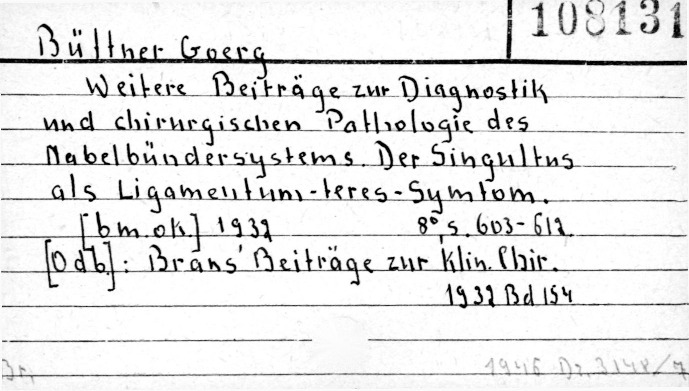 108131
Büttner Goerg
Weitere Beiträge zur Diagnostik
und chirurgischen Pathologie des
Nabelbündersystems. Der Singultus
als Ligamentum-teres-Symtom.
[b.m.ok.] 1932 8°, s. 603-612.
[Odb.]: Brans' Beiträge zur Klin. Chir.
1932 Bd 154
1946 Dz. 3148/7